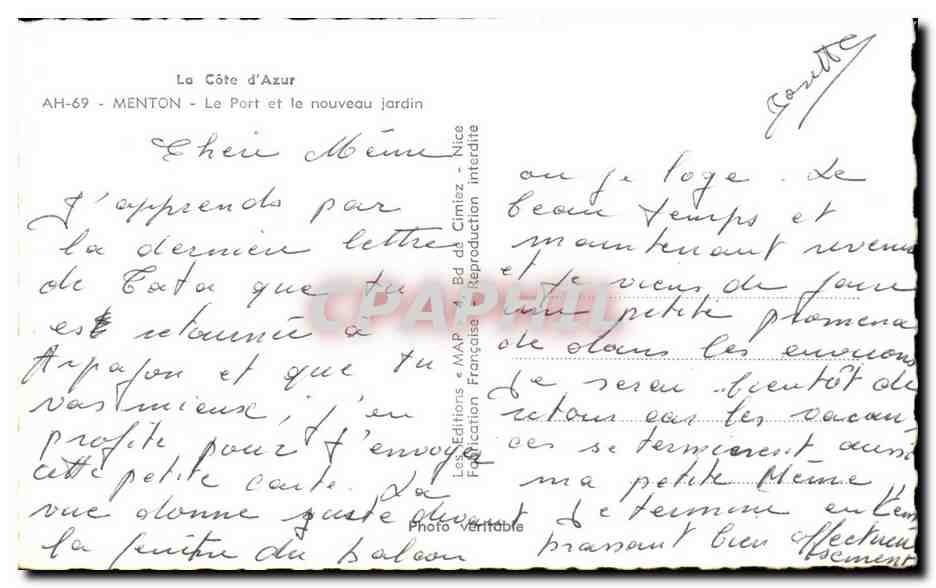 La Côte d'Azur
AH-69 - MENTON - Le Port et le nouveau jardin
Chère Mémé
J'apprends par
la dernière lettre
de Tata que tu
es retournée à
Arpajon et que tu
vas mieux, j'en
profite pour t'envoyer
cette petite carte. La
vue donne juste devant
la fenêtre du balcon
Les Editions « MAP » 4, Bd de Cimiez - Nice
Fabrication Française - Reproduction interdite
Photo véritable
CPAPHIL
Josette
ou je loge. Le
beau temps est
maintenant revenu
et je viens de faire
une petite promena
de dans les environs
Je serai bientôt de
retour car les vacan
ces se terminent aussi
ma petite Mémé
Je termine en t'em
brassant bien affectueu
sement